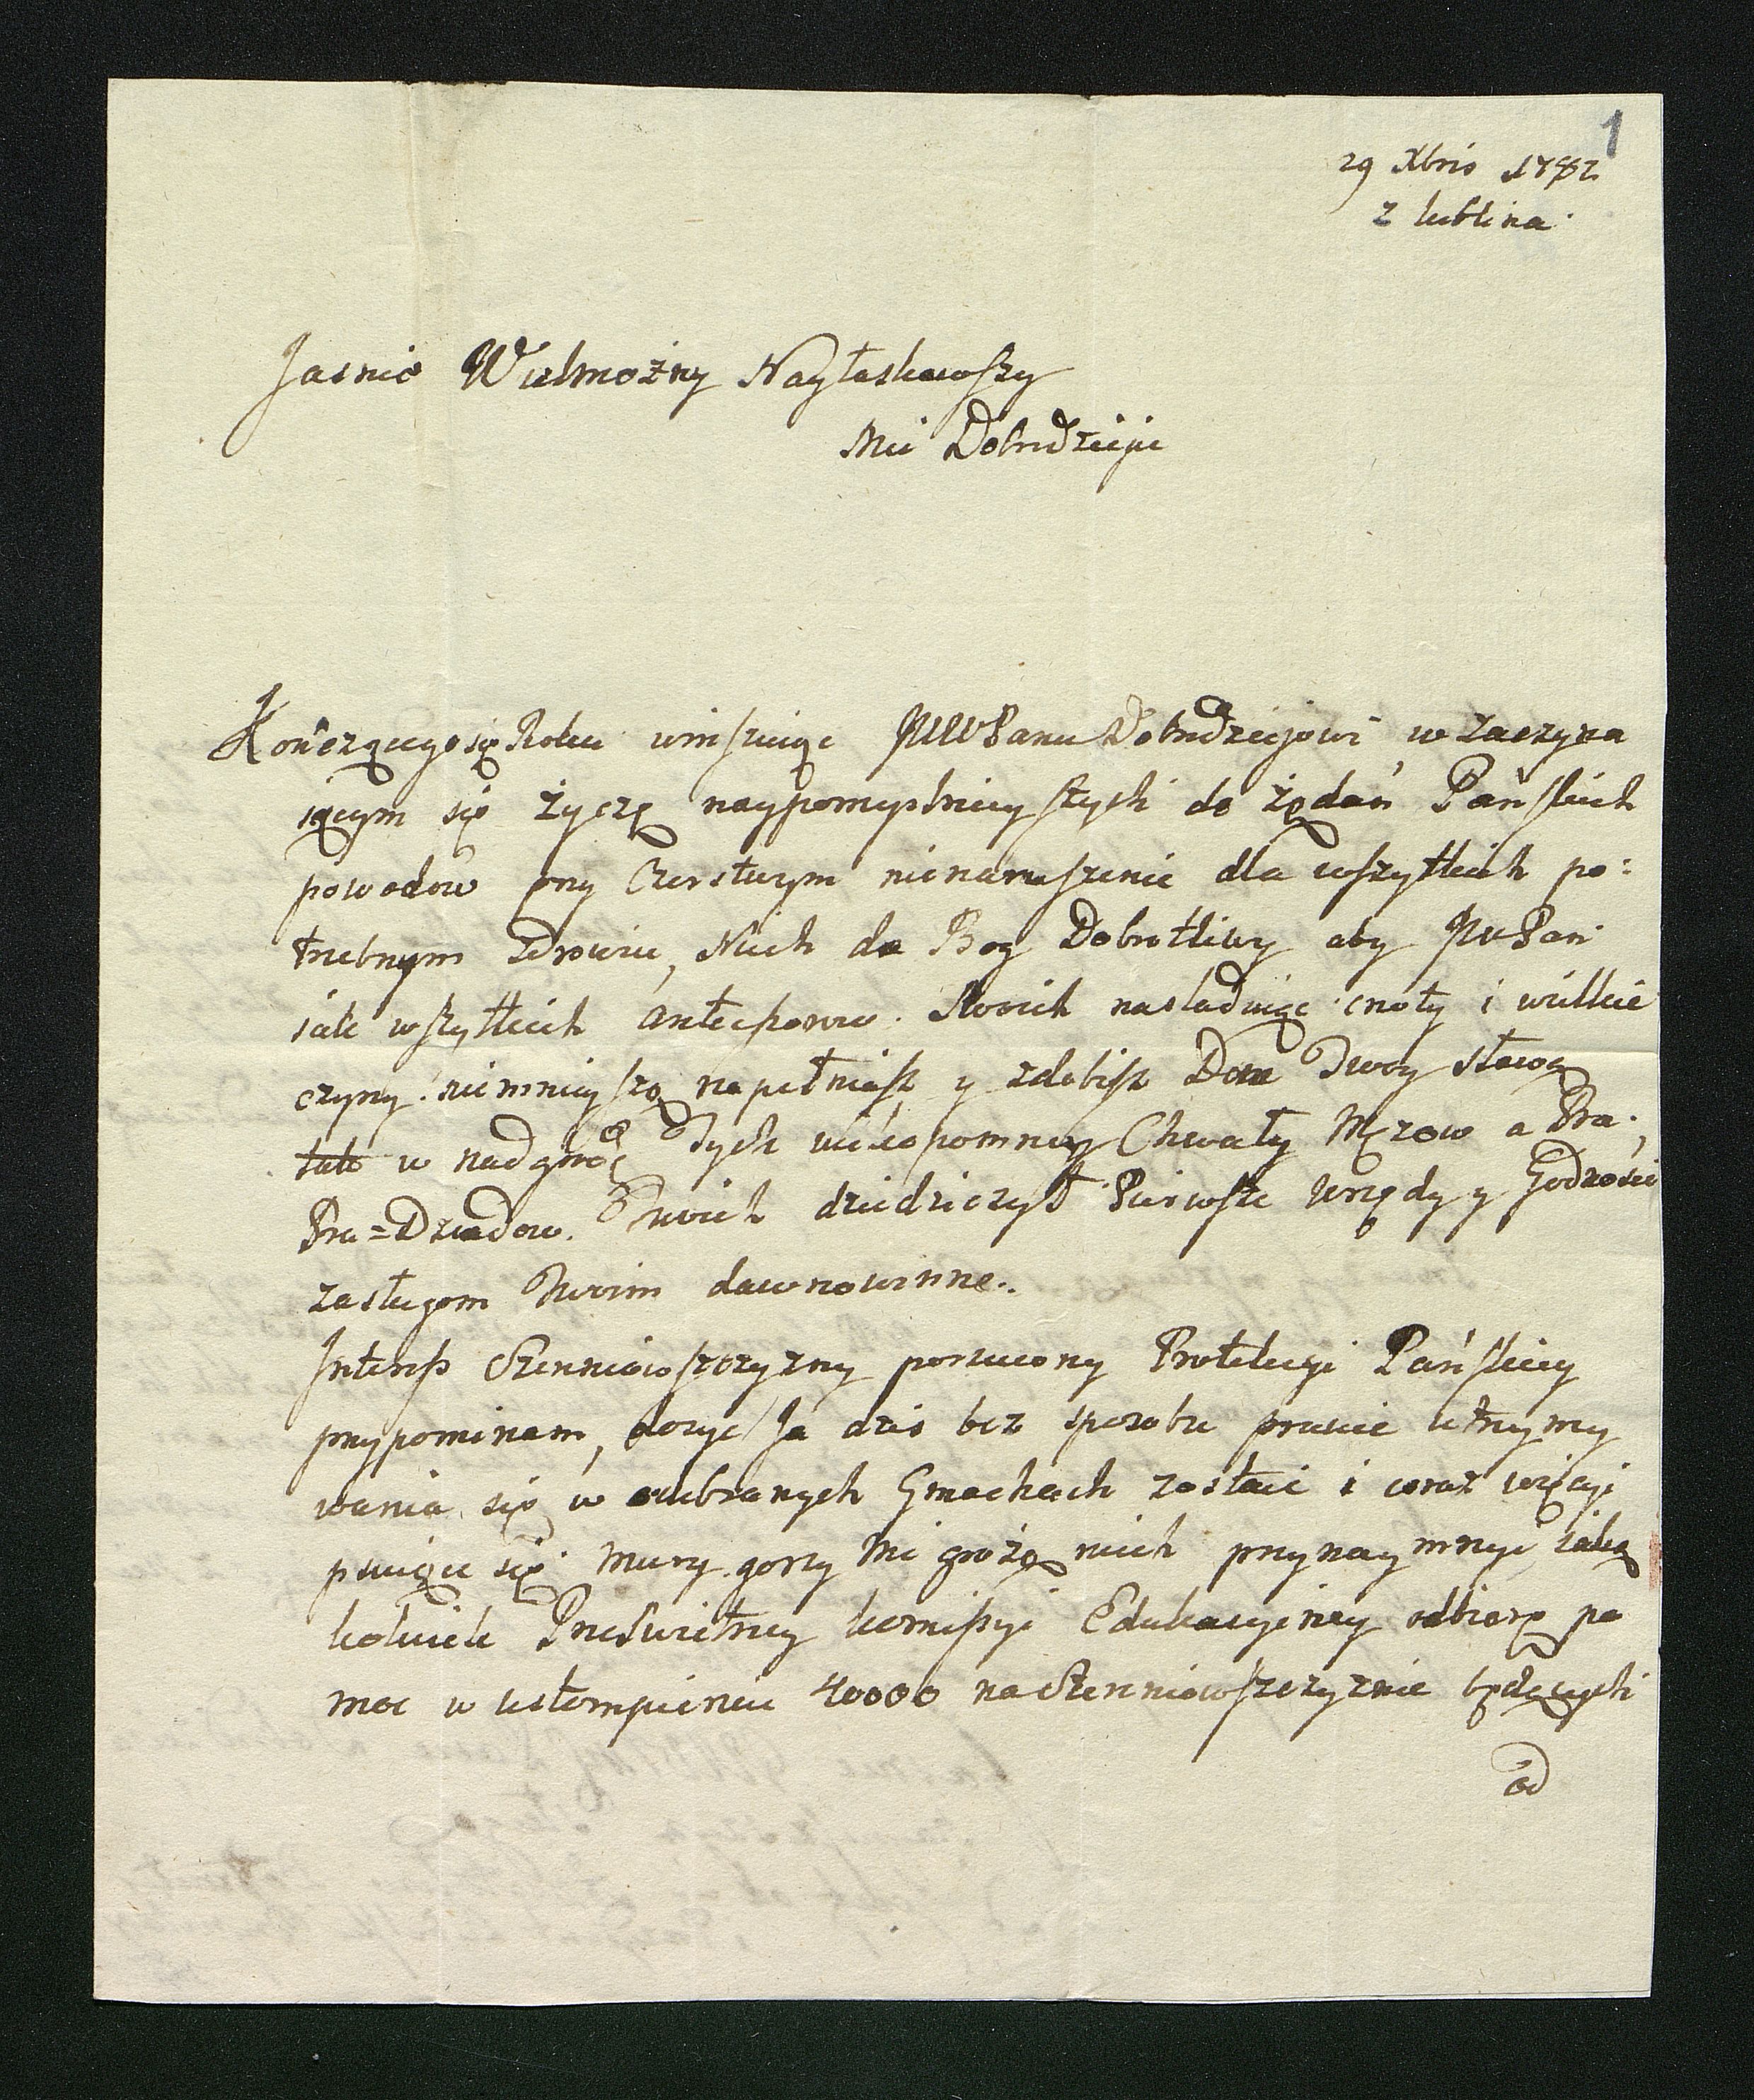 1
29 Xbris 1782
z lublina
Jasnie Wielmożny Nayłaskawszy
Mci Dobrodzieju
Kończącego się Roku winszuiąc JWWPanu Dobrodziejowi w zaczyna
iącym się życzę naypomyslnieyszych do żądań Pańskich
powodow przy Czerstwym nienaruszenie dla wszytkich po:
trzebnym zdrowiu, Niech da Bog Dobrotliwy aby JWPan
iak wszytkich Antecessorow Swoich nasladuiąc cnoty i wielkie
czyny niemnieyszą napełniasz y zdobisz Dom Twoy sławą
tak w nadgrodę Tych wiekopomney Chwały Mężow a Pra
Pra=Dziadow Twoich dziedziczył Pierwsze Urzędy y Godności
zasługom Twoim dawno winne.
Interess Szenniawszczyzny porucony Protekcyi Pańskiey
przypominam, bo żyć Ja dziś bez sposobu prawie utrzymy
wania się w odebranych Gmachach zostaie i coraz więcyi
psuiące się mury gorzy mi grożą niech przynaymniey iaką
kolwiek Prześwietney komissyi Edukacyiney odbiorę po
moc w ustompieniu 40000 na Szenniawszczyznie będących
od